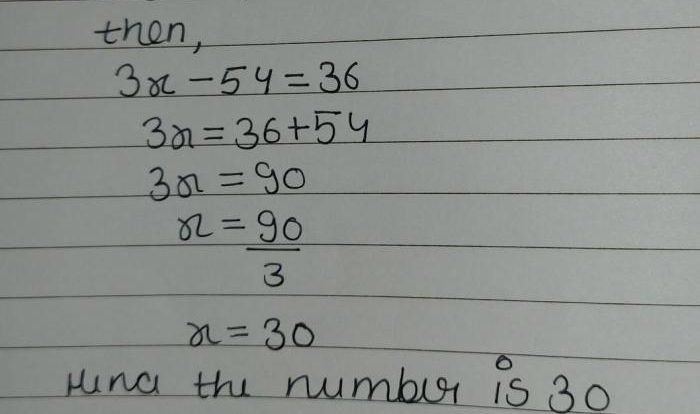 then,
3x - 54 = 36
3x = 36 + 54
3x = 90
x = 90
3
x = 30
Hence the number is 30